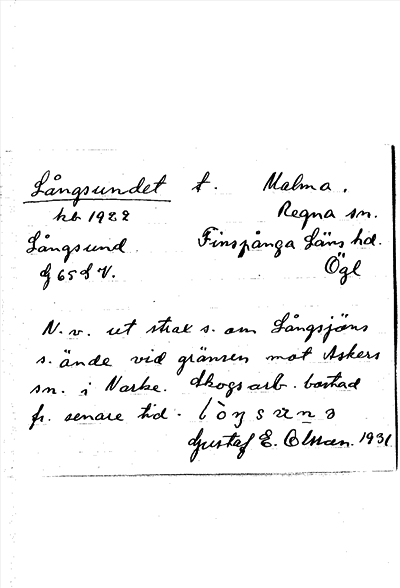 Långsundet t. Malma.
hb 1922 Regna sn.
Långsund Finspånga Läns hd.
Ögl
N. v. ut strax s. om Långsjöns
s. ände vid gränsen mot Askers
sn. i Narke. Skogsarb. bostad
fr. senare tid.
Gustaf E. Olsson. 1931